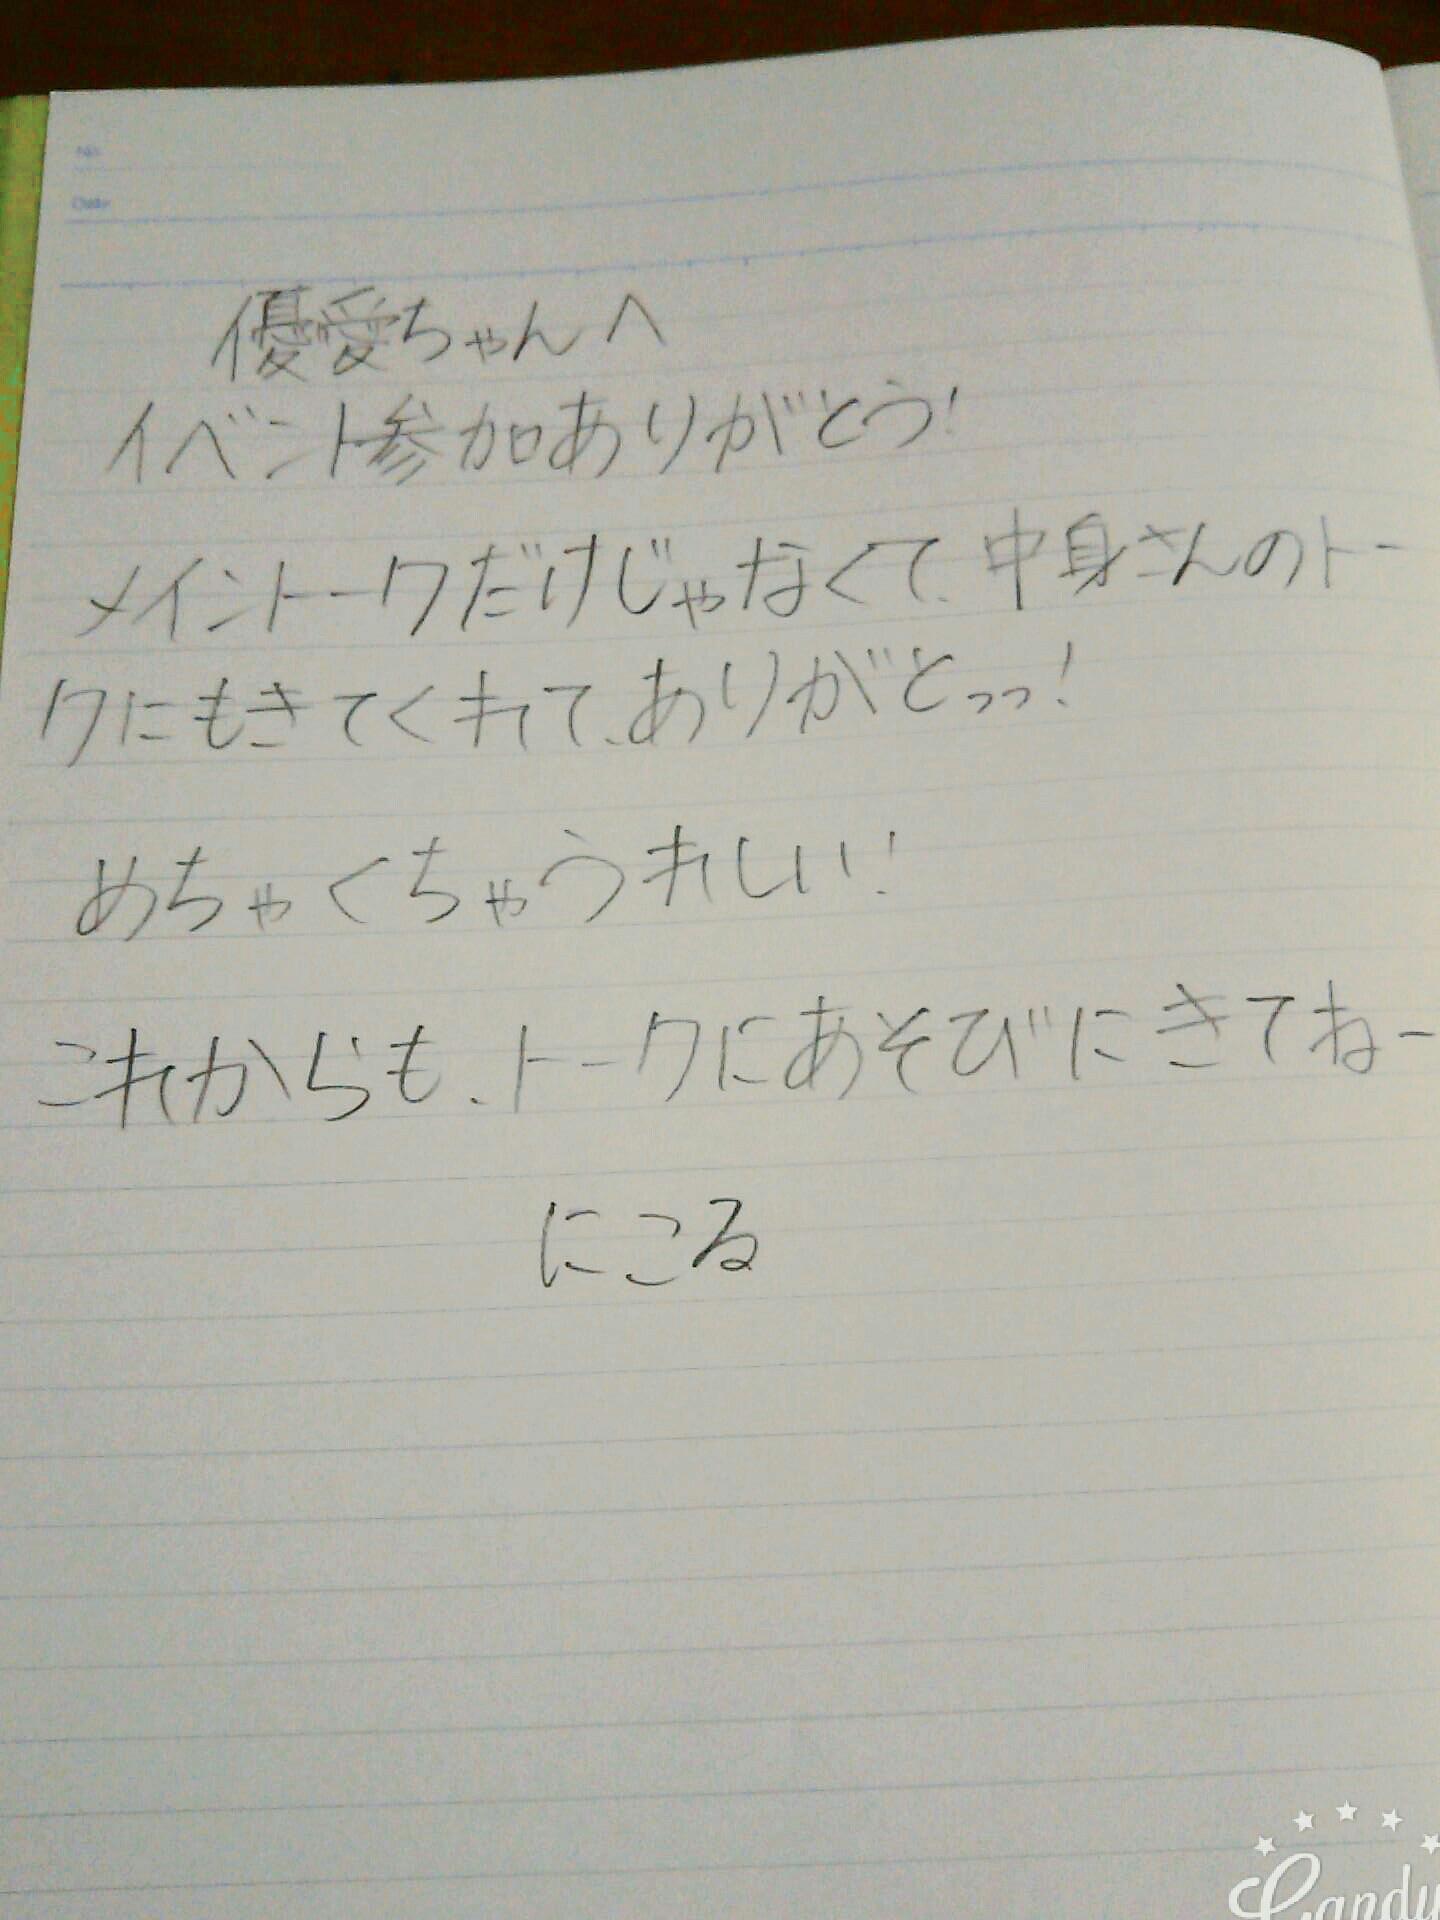 No.
Date
優愛ちゃんへ
イベント参加ありがとう!
メイントークだけじゃなくて、中身さんのトー
クにもきてくれて、ありがとっっ!
めちゃくちゃうれしい!
これからも、トークにあそびにきてねー
にこる
Candy